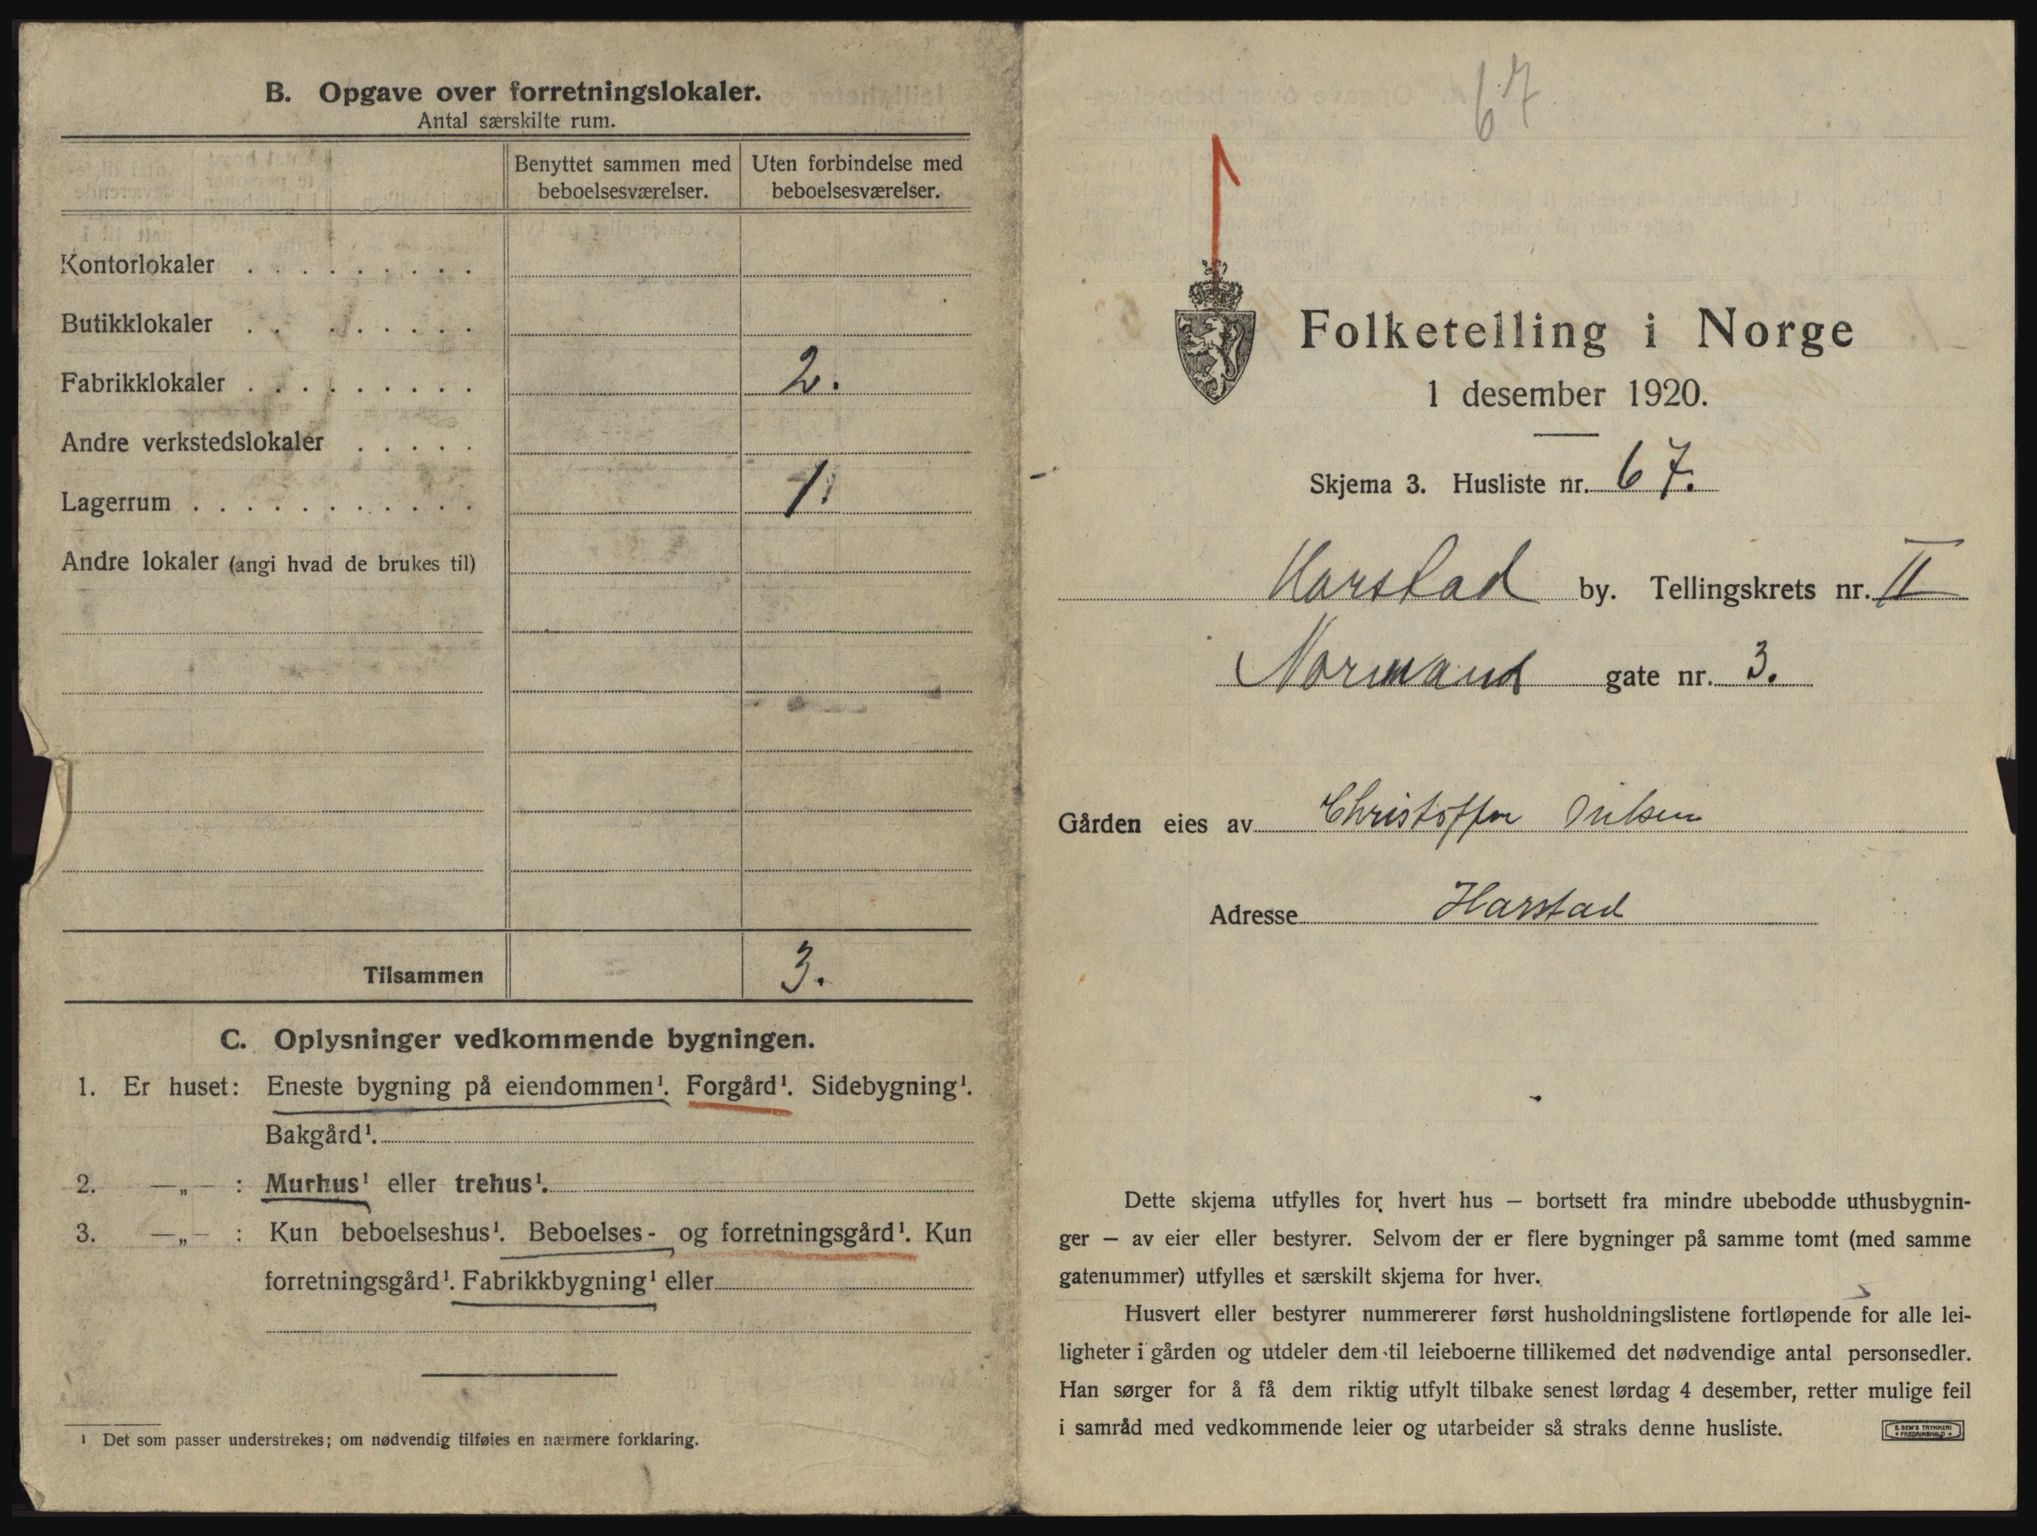 B. Opgave over forretningslokaler.
Antal særskilte rum.
Benyttet sammen med beboelsesværelser.
Uten forbindelse med beboelsesværelser.
Kontorlokaler . . . . . . . . .
Butikklokaler . . . . . . . .
Fabrikklokaler . . . . . . . . . 2.
Andre verkstedslokaler . . . . .
Lagerrum . . . . . . . . . . . . 1.
Andre lokaler (angi hvad de brukes til)
Tilsammen 3.
C. Oplysninger vedkommende bygningen.
1. Er huset: Eneste bygning på eiendommen¹. Forgård¹. Sidebygning¹.
Bakgård¹.
2. —„— : Murhus¹ eller trehus¹.
3. —„— : Kun beboelseshus¹. Beboelses- og forretningsgård¹. Kun
forretningsgård¹. Fabrikkbygning¹ eller
¹ Det som passer understrekes; om nødvendig tilføies en nærmere forklaring.
67
Folketelling i Norge
1 desember 1920.
Skjema 3. Husliste nr. 67.
Harstad by. Tellingskrets nr. II
Normand gate nr. 3.
Gården eies av Christoffer Nilsen
Adresse Harstad
Dette skjema utfylles for hvert hus — bortsett fra mindre ubebodde uthusbygnin-
ger — av eier eller bestyrer. Selvom der er flere bygninger på samme tomt (med samme
gatenummer) utfylles et særskilt skjema for hver.
Husvert eller bestyrer nummererer først husholdningslistene fortløpende for alle lei-
ligheter i gården og utdeler dem til leieboerne tillikemed det nødvendige antal personsedler.
Han sørger for å få dem riktig utfylt tilbake senest lørdag 4 desember, retter mulige feil
i samråd med vedkommende leier og utarbeider så straks denne husliste.